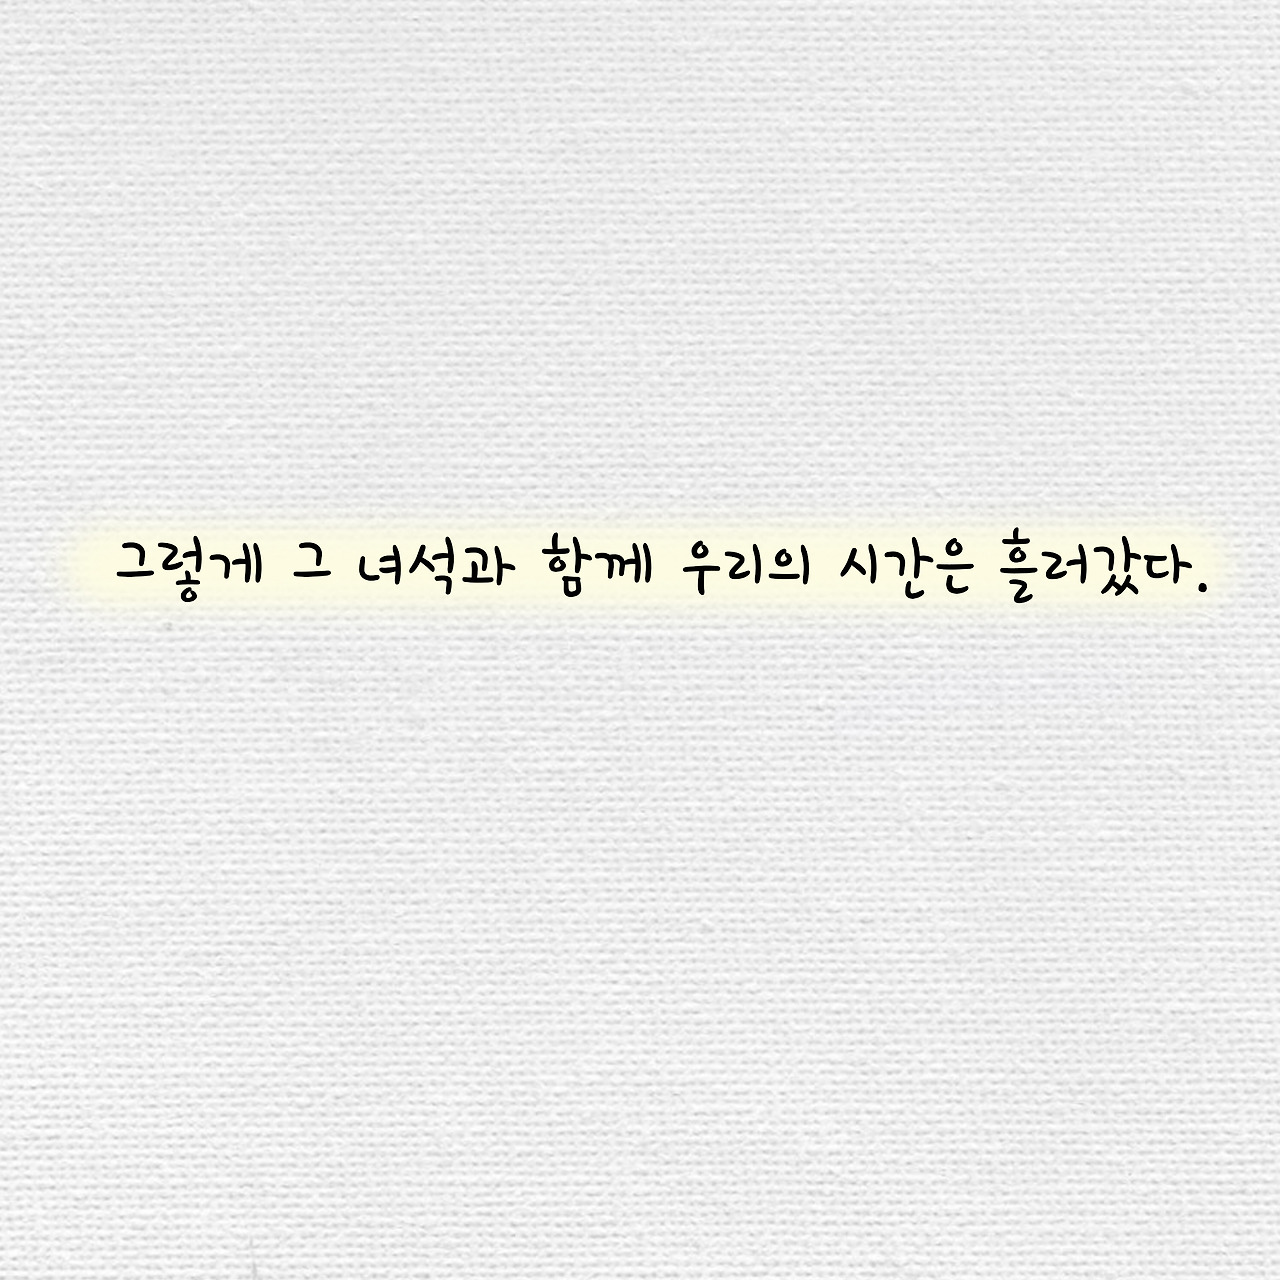 그렇게 그 녀석과 함께 우리의 시간은 흘러갔다.